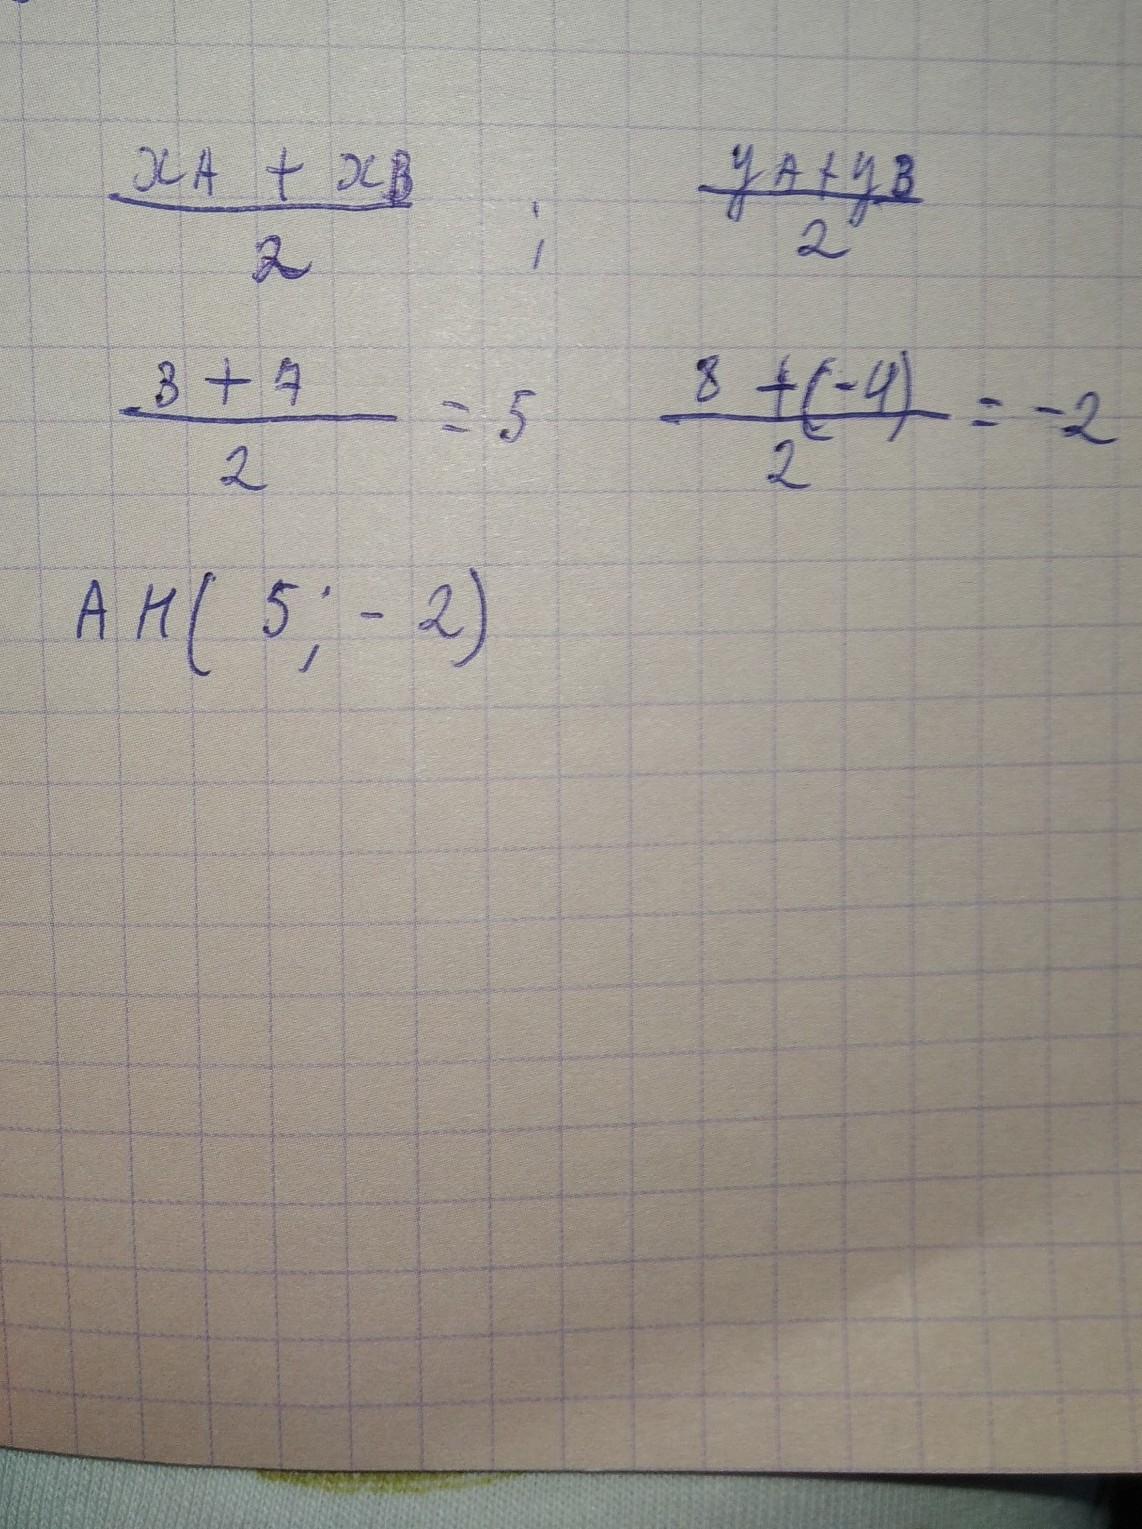 xA + xB / 2 ; yA + yB / 2
3 + 7 / 2 = 5 8 + (-4) / 2 = -2
AM( 5; - 2)